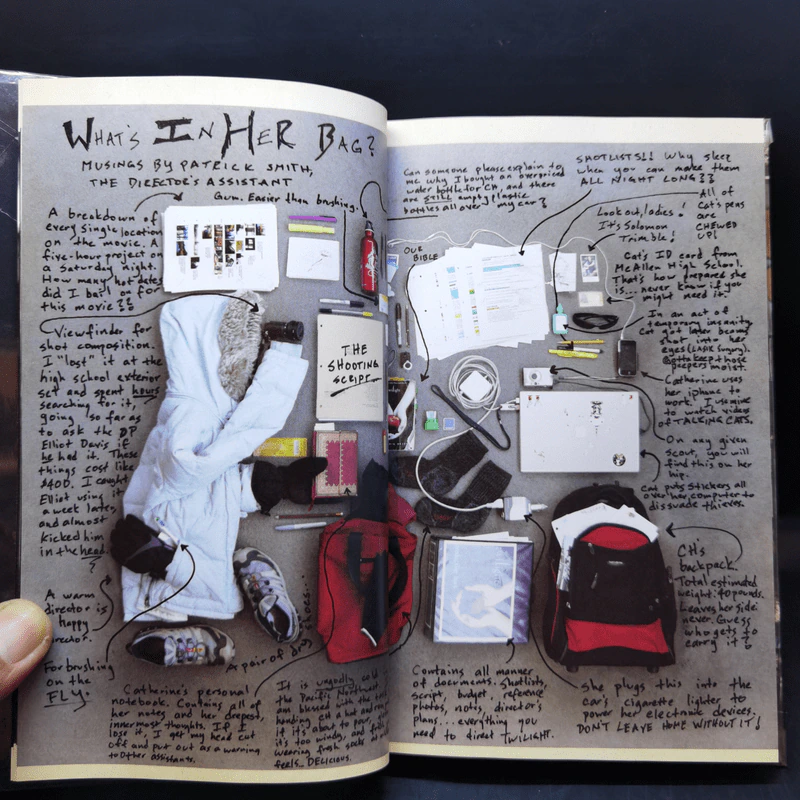 WHAT'S IN HER BAG?
MUSINGS BY PATRICK SMITH,
THE DIRECTOR'S ASSISTANT
Gum. Easier than brushing.
A breakdown of
every single location
on the movie. A
five-hour project on
a Saturday night.
How many hot dates
did I bail on for
this movie??
Viewfinder for
shot composition.
I "lost" it at the
high school exterior
set and spent hours
searching for it,
going so far as
to ask the DP
Elliot Davis if
he had it. These
things cost like
$400. I caught
Elliot using it
a week later
and almost
kicked him
in the head.
A warm
director is
a happy
director.
For brushing
on the
FLY.
A pair of dry shoes...
Catherine's personal
notebook. Contains all of
her notes and her deepest,
innermost thoughts. If I
lose it, I get my head cut
off and put out as a warning
to other assistants.
It is ungodly cold
the Pacific Northwest
am blessed with the
handing CH a hot
if it's about to pour,
it's too windy, and
wearing fresh socks
feels... DELICIOUS.
THE
SHOOTING
SCRIPT
Can someone please explain to
me why I bought an overpriced
water bottle for CH, and there
are STILL empty plastic
bottles all over my car?
OUR
BIBLE
SHOTLISTS!! Why sleep
when you can make them
ALL NIGHT LONG??
All of
Cat's pens
are
CHEWED
UP!
Look out, ladies!
It's Solomon
Trimble!
Cat's ID card from
McAllen High School.
That's how prepared she
is... never know if you
might need it.
In an act of
temporary insanity
Cat got laser beams
shot into her
eyes (LASIK Surgery).
Gotta keep those
peepers moist.
Catherine uses
her iphone to
work. I use mine
to watch videos
of TALKING CATS.
On any given
scout, you will
find this on her
hip.
Cat puts stickers all
over her computer to
dissuade thieves.
CH's
backpack.
Total estimated
weight: 40 pounds.
Leaves her side
never. Guess
who gets to
carry it?
Contains all manner
of documents. Shotlists,
script, budget, reference
photos, notes, director's
plans... everything you
need to direct TWILIGHT.
She plugs this into the
car's cigarette lighter to
power her electronic devices.
DON'T LEAVE HOME WITHOUT IT!